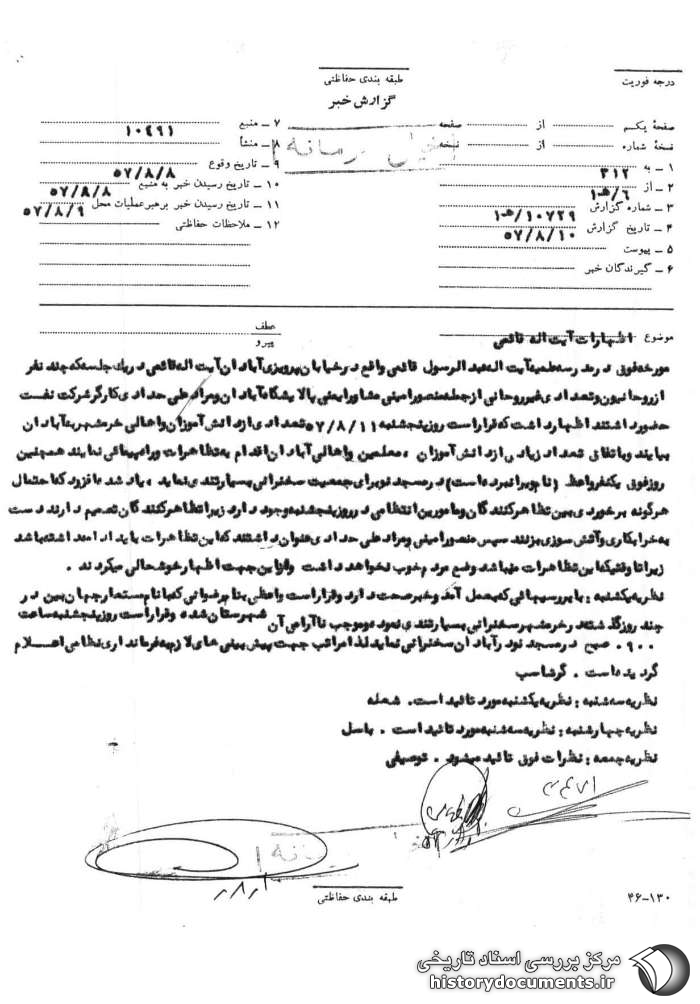 درجه فوریت
طبقه بندی حفاظتی
گزارش خبر
صفحهٔ یکم از صفحه
نسخهٔ شماره از نسخه
۱ – به ۳۱۲
۲ – از ۶/هـ۱
۳ – شماره گزارش ۱۰۷۲۹/هـ۱
۴ – تاریخ گزارش ۵۷/۸/۱۰
۵ – پیوست
۶ – گیرندگان خبر
۷ – منبع ۱۰۴۹۱
۸ – منشأ
۹ – تاریخ وقوع ۵۷/۸/۸
۱۰ – تاریخ رسیدن خبر به منبع ۵۷/۸/۸
۱۱ – تاریخ رسیدن خبر برهبر عملیات محل ۵۷/۸/۹
۱۲ – ملاحظات حفاظتی
خیلی محرمانه
موضوع اظهارات آیت اله قائمی
عطف
پیرو
مورخه فوق در مدرسه علمیه آیت اله عبدالرسول قائمی واقع در خیابان پرویزی آبادان آیت اله قائمی در یک جلسه که چند نفر
از روحانیون و تعدادی غیر روحانی از جمله منصور امینی مشاور ایمنی پالایشگاه آبادان و مراد علی حدادی کارگر شرکت نفت
حضور داشتند اظهار داشت که قرار است روز پنجشنبه ۵۷/۸/۱۱ تعدادی از دانش آموزان و اهالی خرمشهر به آبادان
بیایند و باتفاق تعداد زیادی از دانش آموزان ، معلمین و اهالی آبادان اقدام به تظاهرات و راهپیمائی نمایند همچنین
روز فوق یکنفر واعظ (نام ویرا نبرده است) در مسجد نو برای جمعیت سخنرانی بسیار تندی مینماید ، یاد شده افزود که احتمال
هرگونه برخوردی بین تظاهر کنندگان و مامورین انتظامی در روز پنجشنبه وجود دارد زیرا تظاهر کنندگان تصمیم دارند دست
به خرابکاری و آتش سوزی بزنند سپس منصور امینی و مراد علی حدادی عنوان داشتند که این تظاهرات باید ادامه داشته باشد
زیرا تا وقتیکه این تظاهرات مهیا شد وضع مردم خوب نخواهد داشت و از این جهت اظهار خوشحالی میکردند .
نظریه یکشنبه : با بررسیهائی که بعمل آمد و خبر صحت دارد و قرار است واعظی بنام رضوانی که با نام مستعار جهان بین در
چند روز گذشته در خرمشهر سخنرانی بسیار تندی نموده و موجب ناآرامی آن شهرستان شده و قرار است روز پنجشنبه ساعت
۰۹۰۰ صبح در مسجد نو در آبادان سخنرانی نماید لذا مراتب جهت پیش بینی های لازم به فرمانداری نظامی اعلام
گردیده است . گرشاسب
نظریه سه شنبه : نظریه یکشنبه مورد تائید است . شعله
نظریه چهارشنبه : نظریه سه شنبه مورد تائید است . باسل
نظریه جمعه : نظرات فوق تائید میشود . توصیفی
طبقه بندی حفاظتی
۴۶-۱۳۰
مرکز بررسی اسناد تاریخی
historydocuments.ir